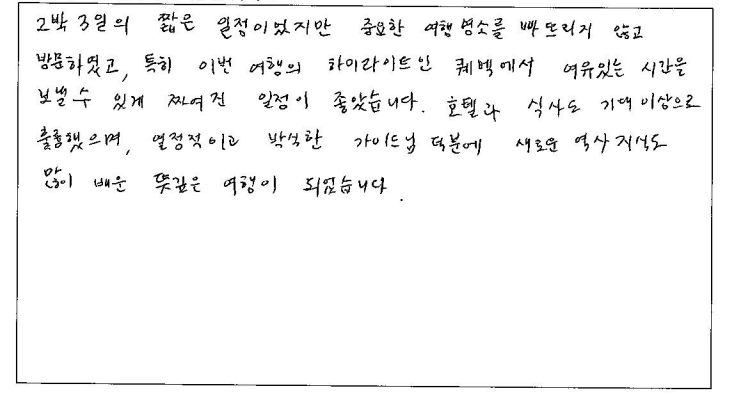 2박 3일의 짧은 일정이었지만 중요한 여행명소를 빠뜨리지 않고
방문하였고, 특히 이번 여행의 하이라이트인 퀘벡에서 여유있는 시간을
보낼 수 있게 짜여진 일정이 좋았습니다. 호텔과 식사도 기대이상으로
훌륭했으며, 열정적이고 박식한 가이드님 덕분에 새로운 역사지식도
많이 배운 뜻깊은 여행이 되었습니다.